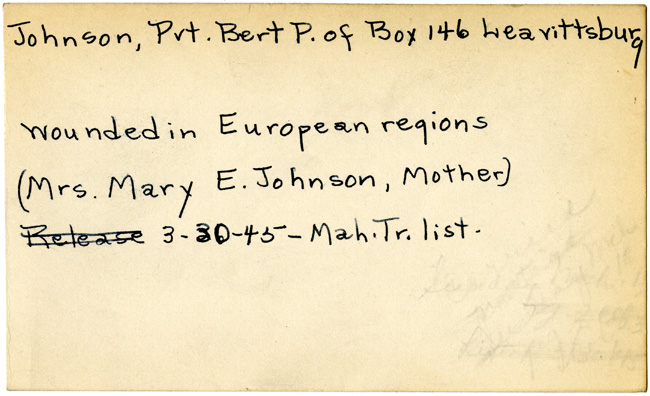 Johnson, Pvt. Bert P. of Box 146 Leavittsburg
wounded in European regions
(Mrs. Mary E. Johnson, Mother)
Release 3-30-45 - Mah. Tr. list.